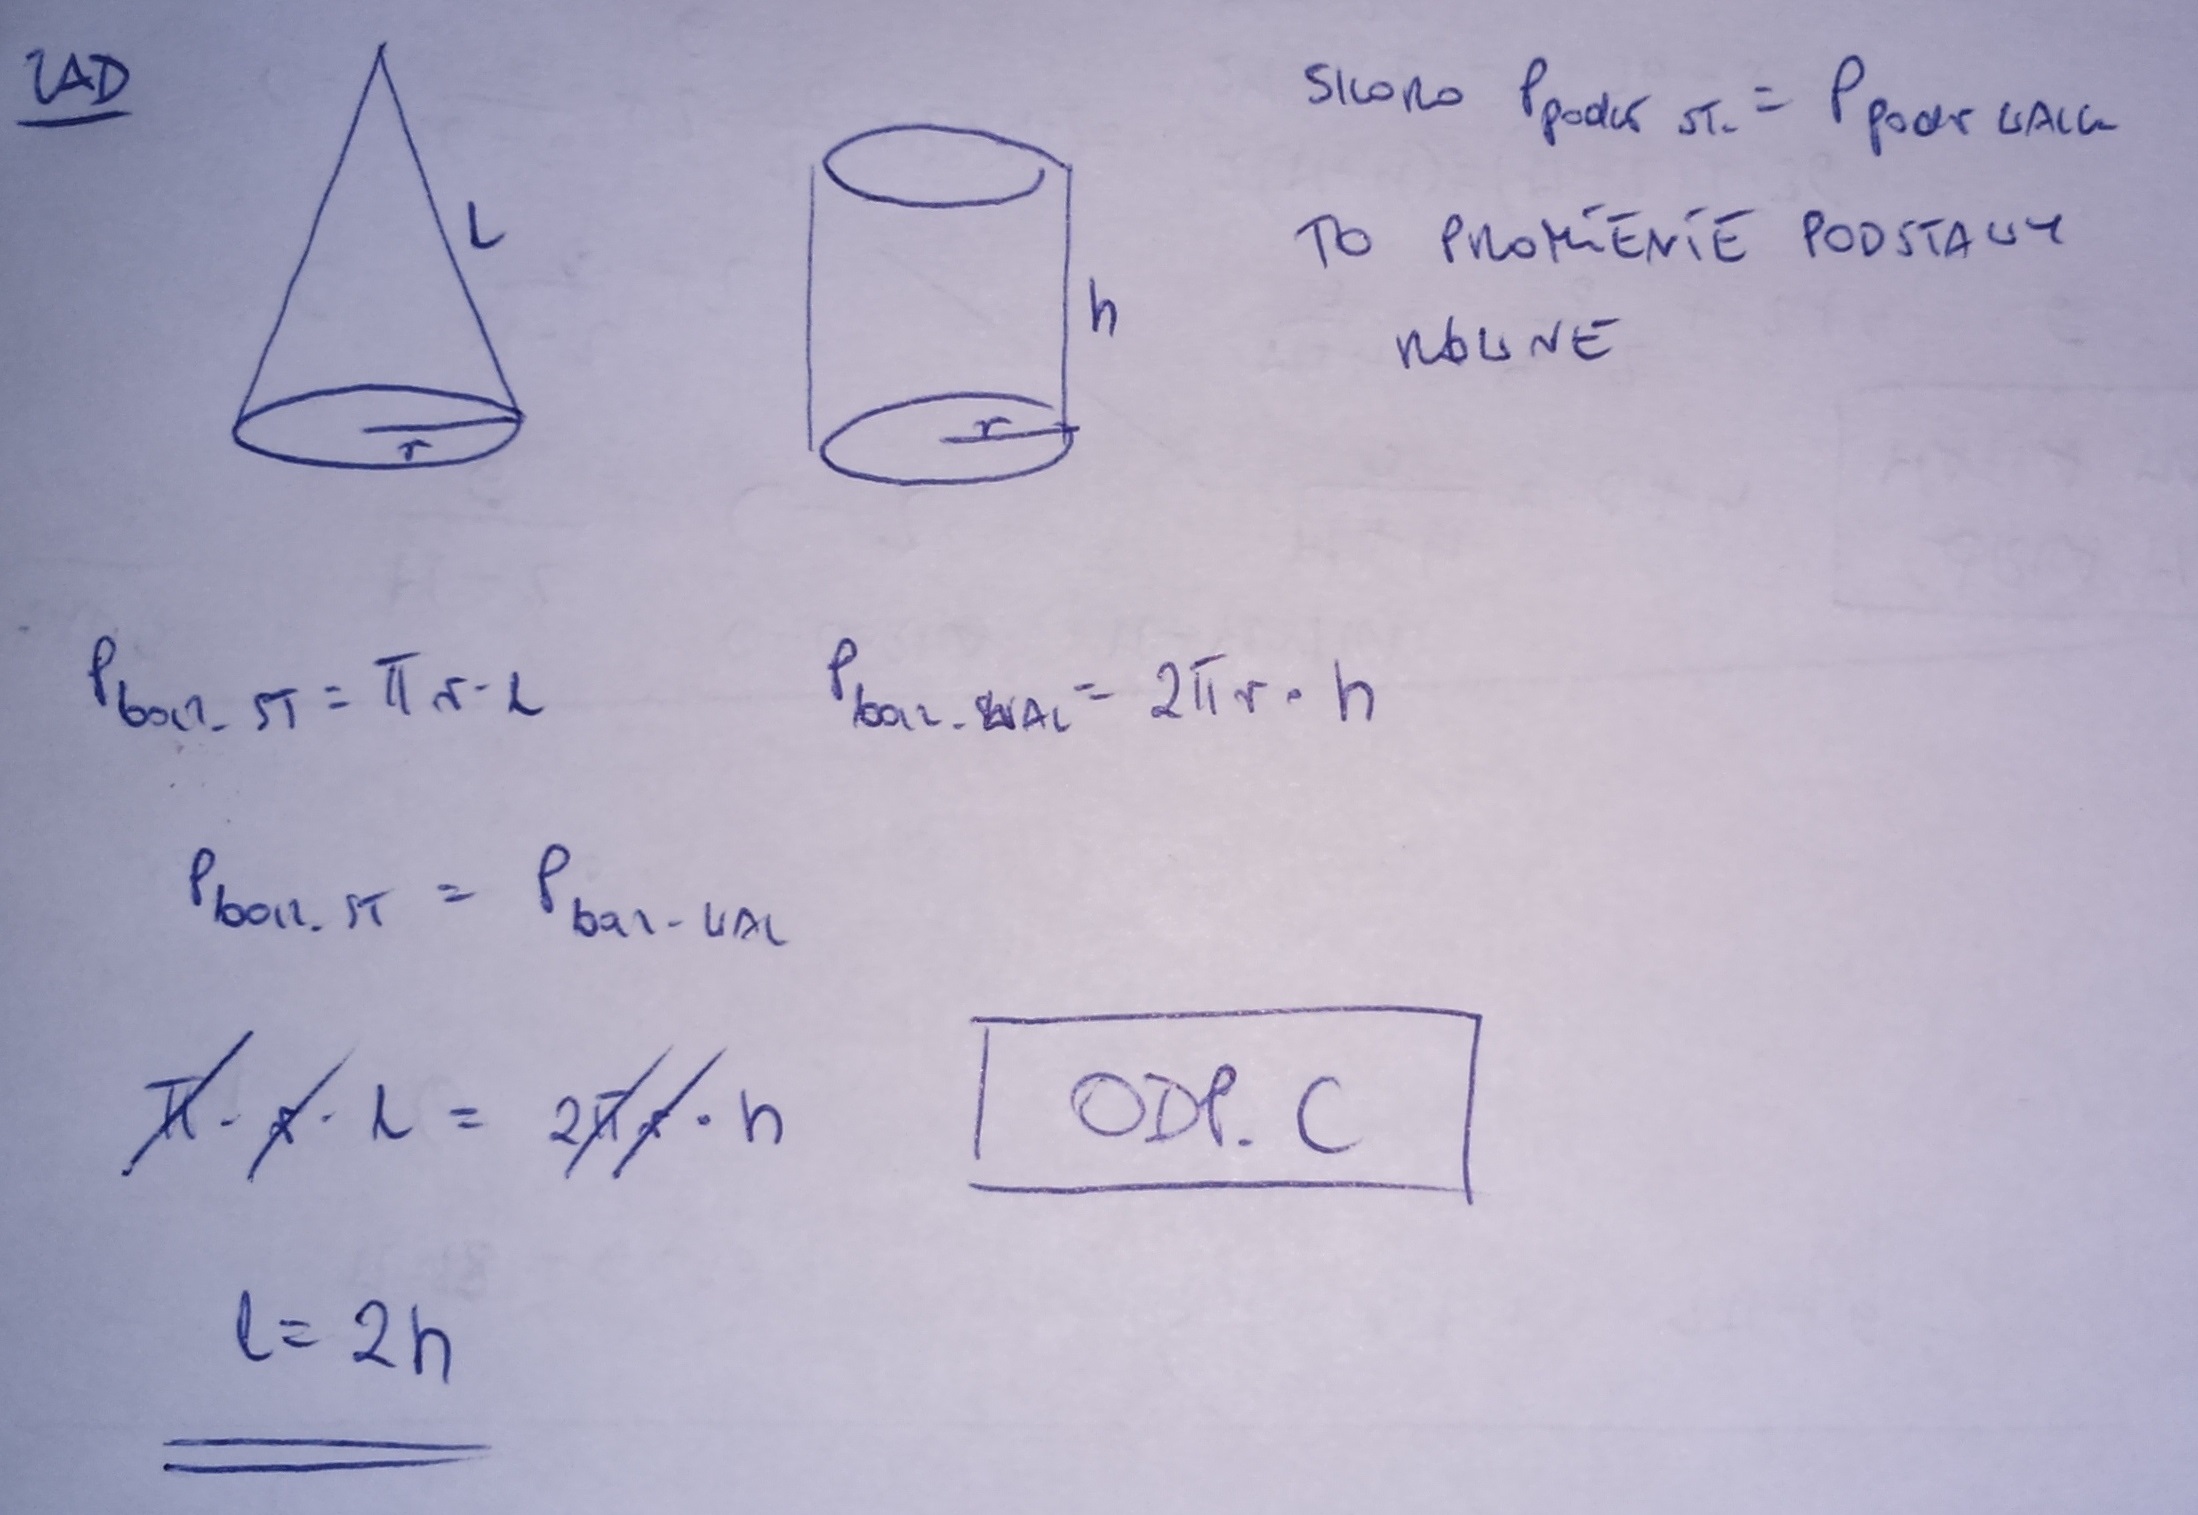 ZAD
L
r
h
r
SKORO Ppodst ST. = Ppodst WALCA
TO PROMIENIE PODSTAWY
RÓWNE
Pbocz. ST = πr·L
Pbocz. WAL = 2πr·h
Pbocz. ST = Pbocz. WAL
π·r·L = 2πr·h
ODP. C
l = 2h